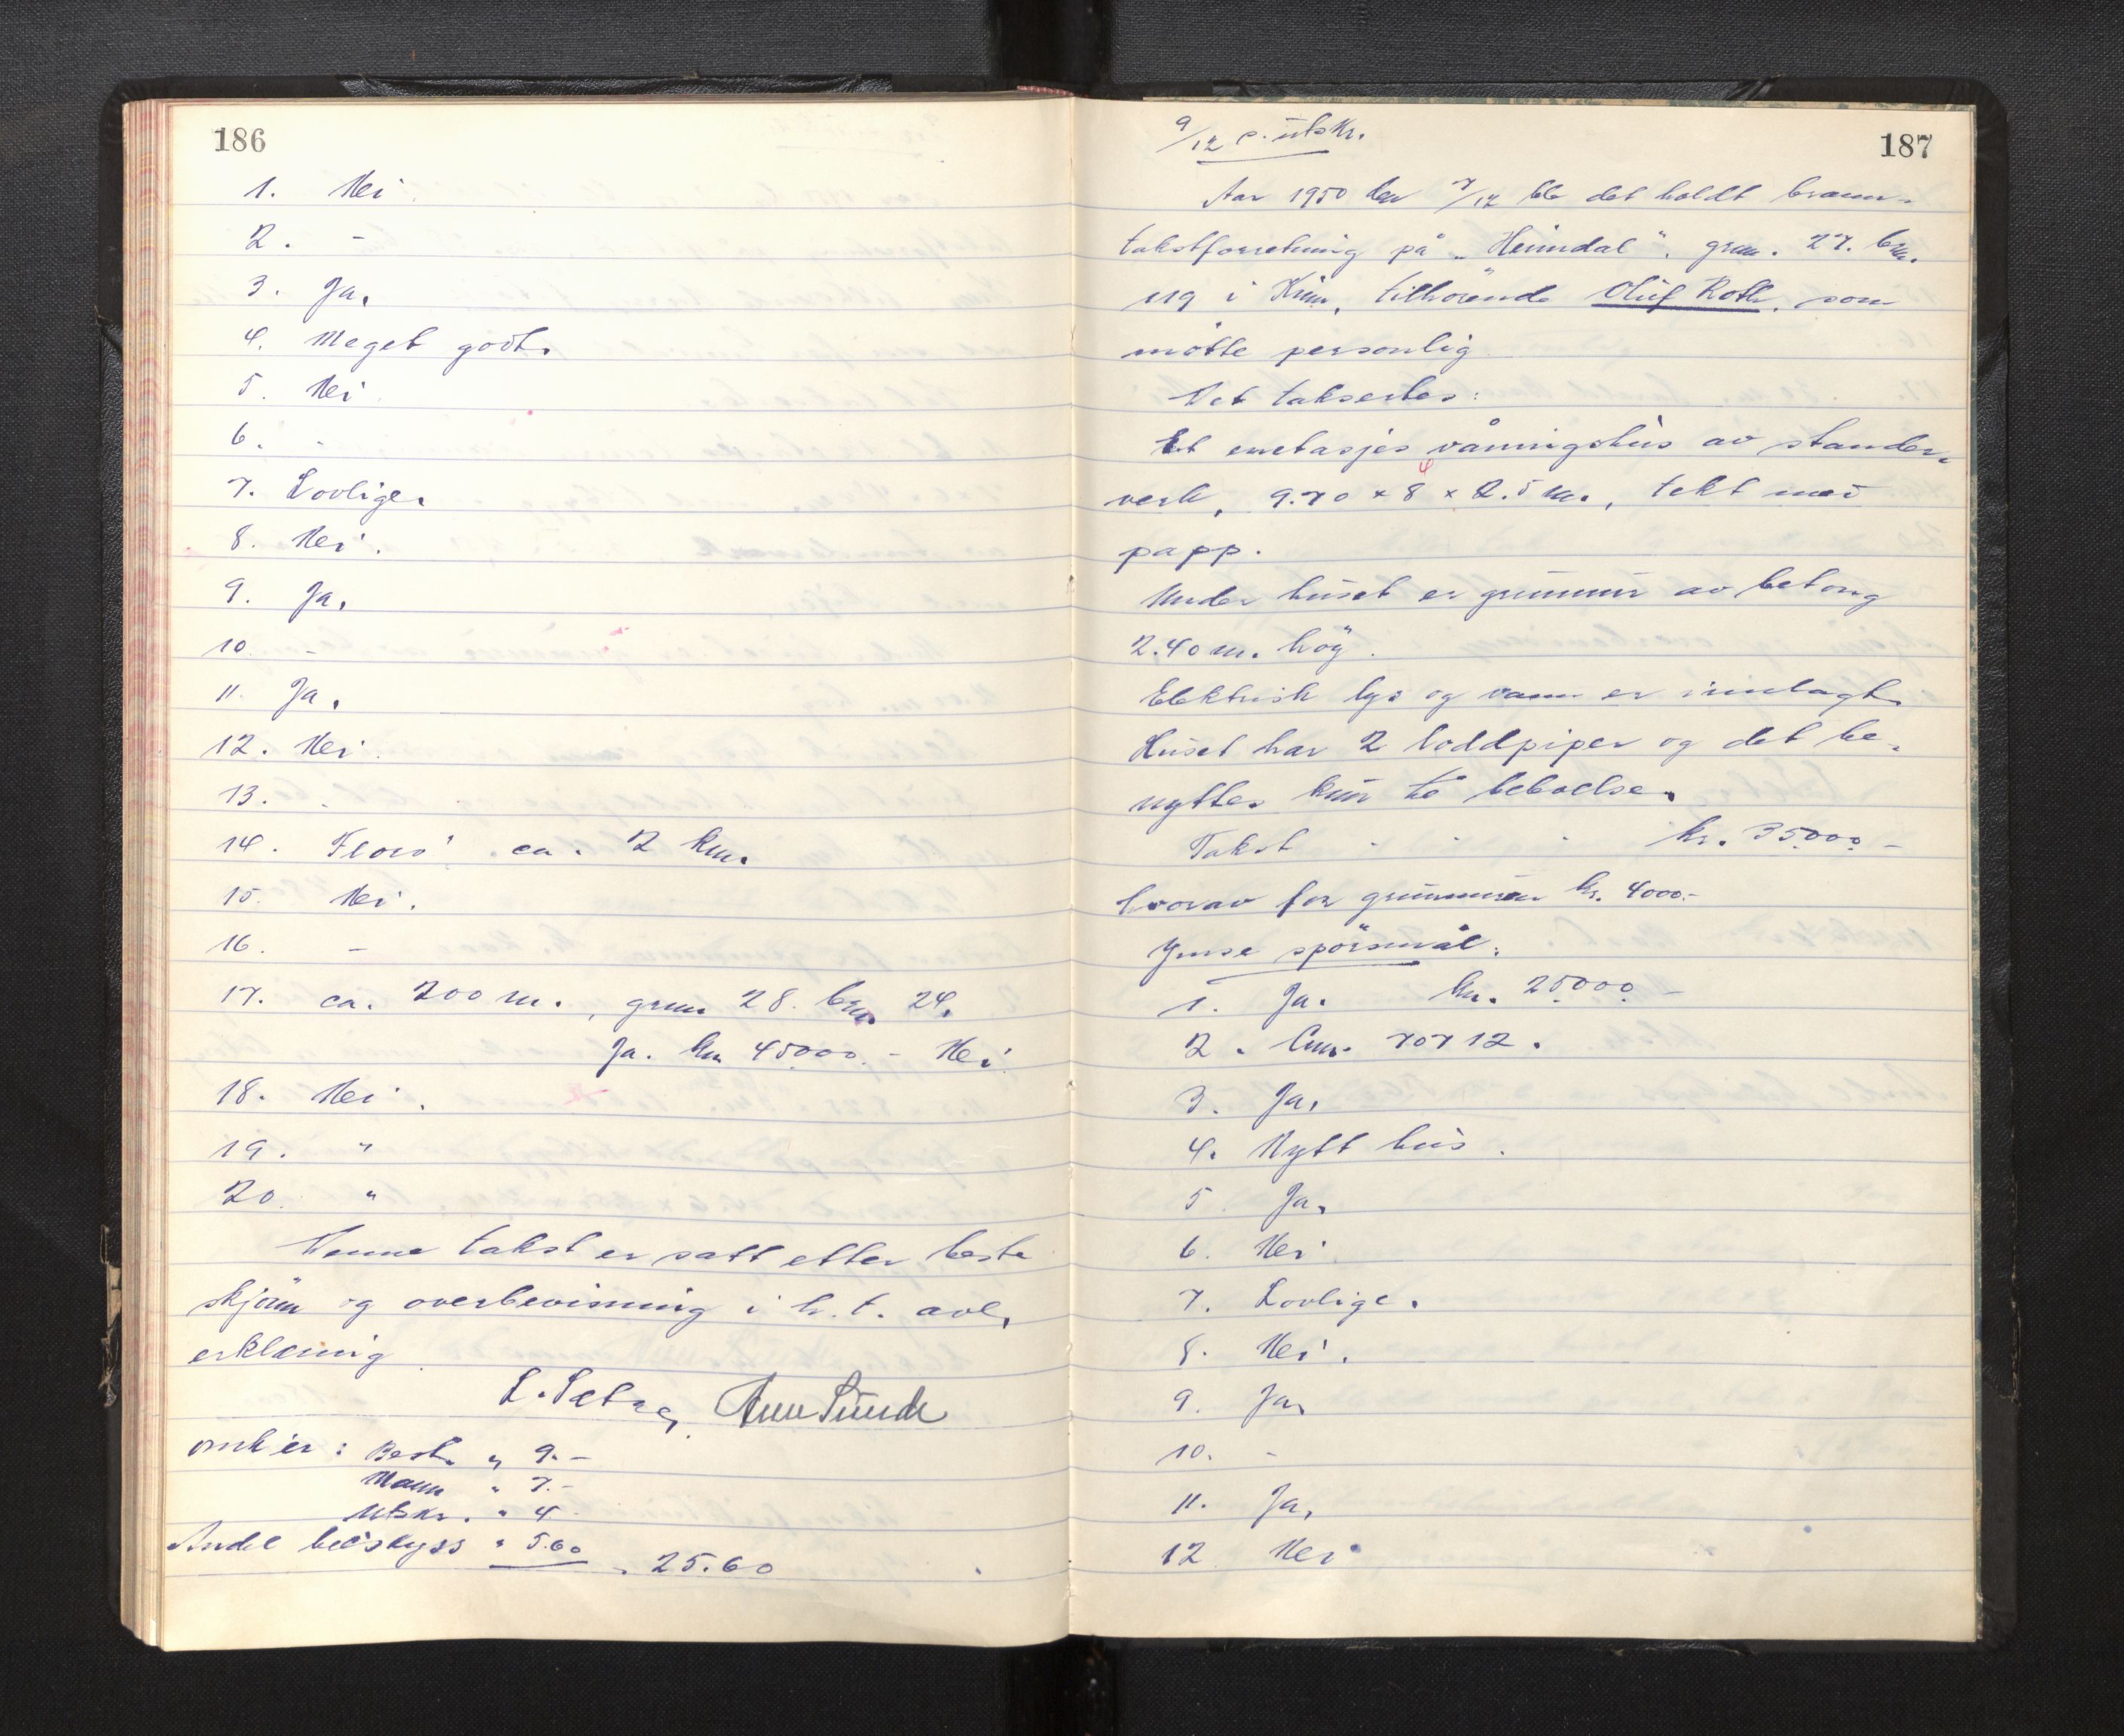 186
1. Nei
2. -
3. Ja.
4. Meget godt.
5. Nei
6. -
7. Lovlige.
8. Nei.
9. Ja.
10 -
11. Ja.
12. Nei.
13. -
14. Florö. ca. 2 km.
15. Nei.
16. -
17. ca. 200 m., gnr. 28. bnr. 24.
Ja. kr. 45000.- Nei
18. Nei.
19. "
20. "
Denne takst er satt etter beste
skjönn og overbevisning i h. t. avl.
erklæring
L. Sætre, Sunde
omk'er: Best. " 9.-
Mann " 7.-
Utskr. " 4
Andel bilskyss " 5.60 " 25.60
9/12 s. utskr.
187
Aar 1950 den 7/12 ble det holdt brann-
takstforretning på "Heimdal". gnr. 27. bnr.
119 i Kinn, tilhörende Oluf Roth. som
mötte personlig
Det takseres:
Et enetasjes våningshus av stender-
verk, 9.70 x 8 x 2.5 m., tekt med
4
papp.
Under huset er grunnmur av betong
2.40 m. höy.
Elektrisk lys og vann er innlagt.
Huset har 2 loddpiper og det be-
nyttes kun til beboelse.
Takst - - - kr. 35000.-
hvorav for grunnmuren kr. 4000.-
Ymse spörsmål:
1. Ja. kr. 25000.-
2. 70712.
3. Ja.
4. Nytt hus.
5 Ja.
6. Nei
7. Lovlige.
8. Nei.
9. Ja.
10. -
11. Ja.
12 Nei